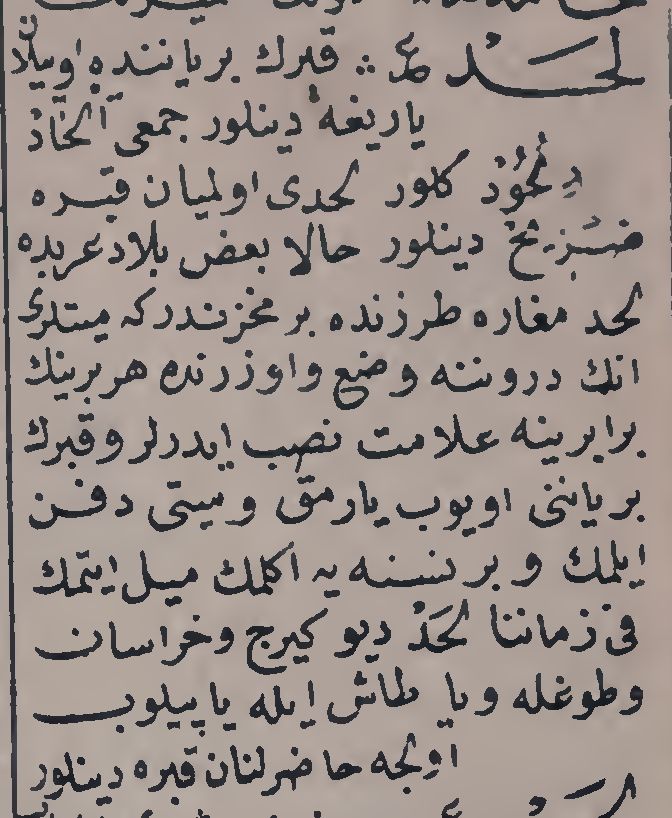 لَحَد ع ∴ قبرك بر ياننده اويلان
ياريغه دينلور جمعى اَلْحَادْ
دِ لُحُودْ كلور لحدى اولميان قبره
ضَرِيحْ دينلور حالا بعض بلاد عربده
لحد مغاره طرزنده بر مخزندركه ميتلرى
انك دروننه وضع و اوزرنده هر برينك
برابرينه علامت نصب ايدرلر و قبرك
بر ياننى اويوب يارمق و ميتى دفن
ايلمك و بر نسنه يه اكلمك ميل ايتمك
فى زماننا لَحَدْ ديو كيرج و خراسان
و طوغله و يا طاش ايله ياپيلوب
اولجه حاضرلنان قبره دينلور